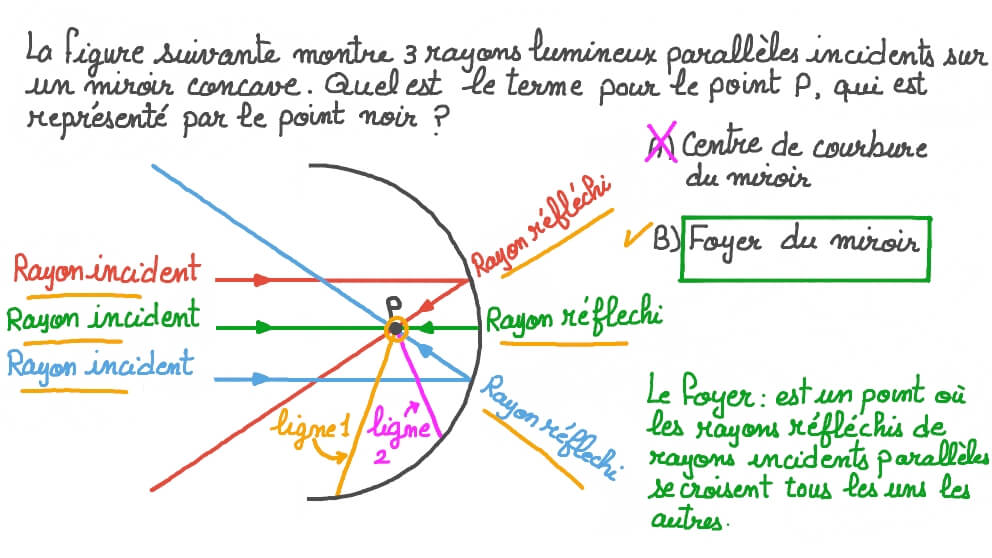 La figure suivante montre 3 rayons lumineux parallèles incidents sur
un miroir concave. Quel est le terme pour le point P, qui est
représenté par le point noir ?
A) Centre de courbure
du miroir
B) Foyer du miroir
Rayon réfléchi
Rayon incident
P
Rayon incident
Rayon réflechi
Rayon incident
Rayon réflechi
ligne 1
ligne
2
Le Foyer : est un point où
les rayons réfléchis de
rayons incidents parallèles
se croisent tous les uns les
autres.